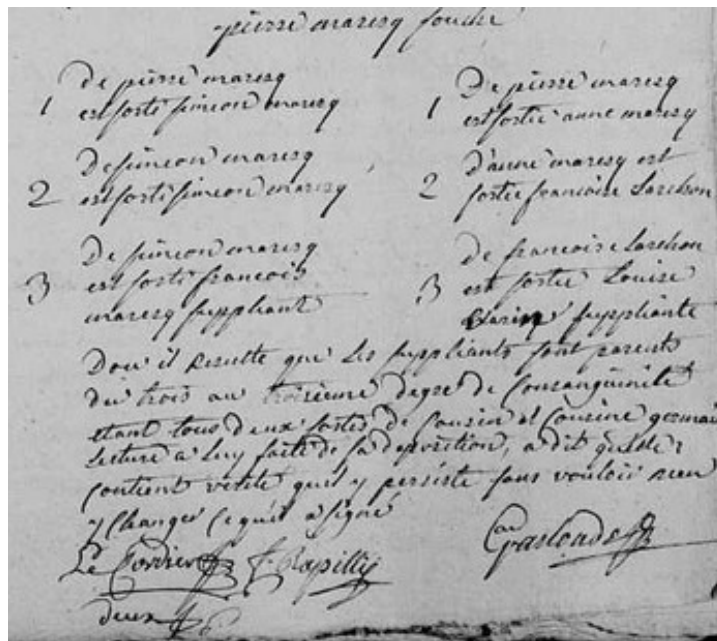 pierre maresq souche
1 De pierre maresq
est sorti simeon maresq
2 De simeon maresq
est sorti simeon maresq
3 De simeon maresq
est sorti francois
maresq suppliant
1 De pierre maresq
est sortie anne maresq
2 d'anne maresq est
sortie francoise Larchon
3 De francoise Larchon
est sortie Louise
suppliante
Dou il Resulte que les suppliants sont parents
du trois au troisieme degré de Consanguinité
etant tous deux sortes de Cousin et Cousine germai
Lecture a luy faite de sa deposition, a dit quelle
contient vérité quil y persiste sans vouloir rien
y changer ce quil a signé
Le Cordier Rapilly
deux